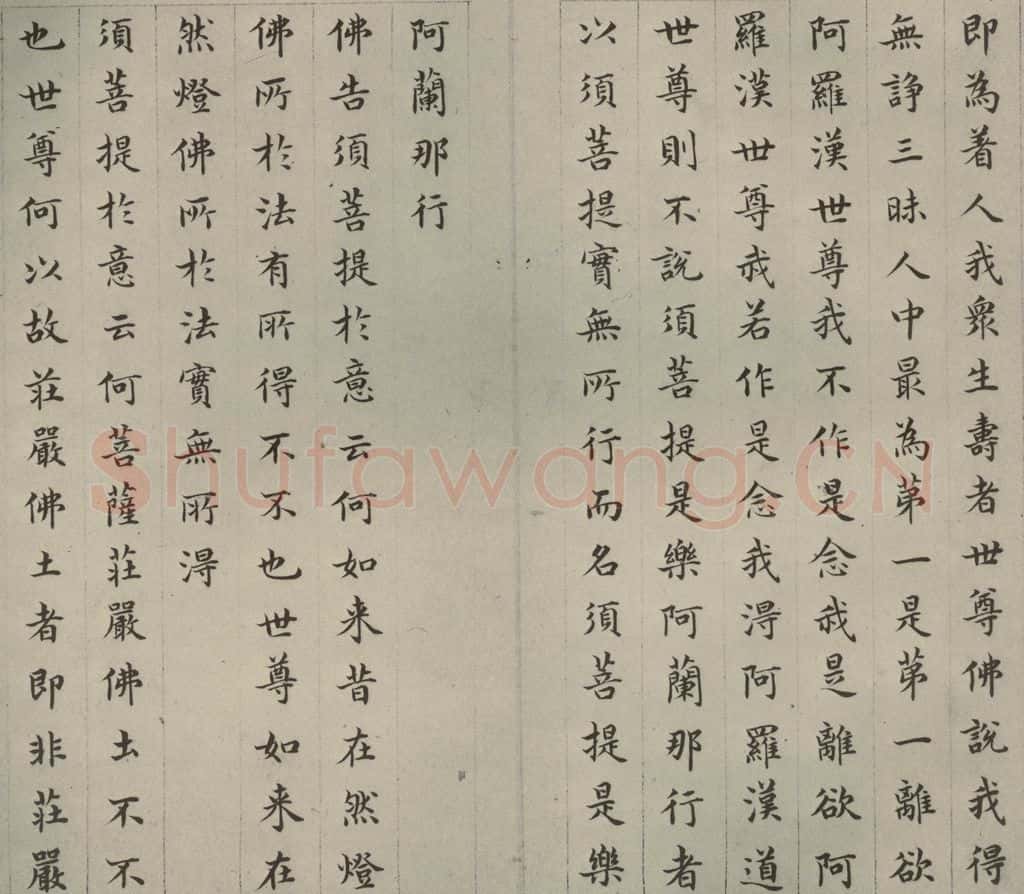 即為着人我衆生壽者世尊佛說我得
無諍三昧人中最為第一是第一離欲
阿羅漢世尊我不作是念我是離欲阿
羅漢世尊我若作是念我得阿羅漢道
世尊則不說須菩提是樂阿蘭那行者
以須菩提實無所行而名須菩提是樂
阿蘭那行
佛告須菩提於意云何如来昔在然燈
佛所於法有所得不不也世尊如来在
然燈佛所於法實無所得
須菩提於意云何菩薩莊嚴佛土不不
也世尊何以故莊嚴佛土者即非莊嚴
Shufawang.CN